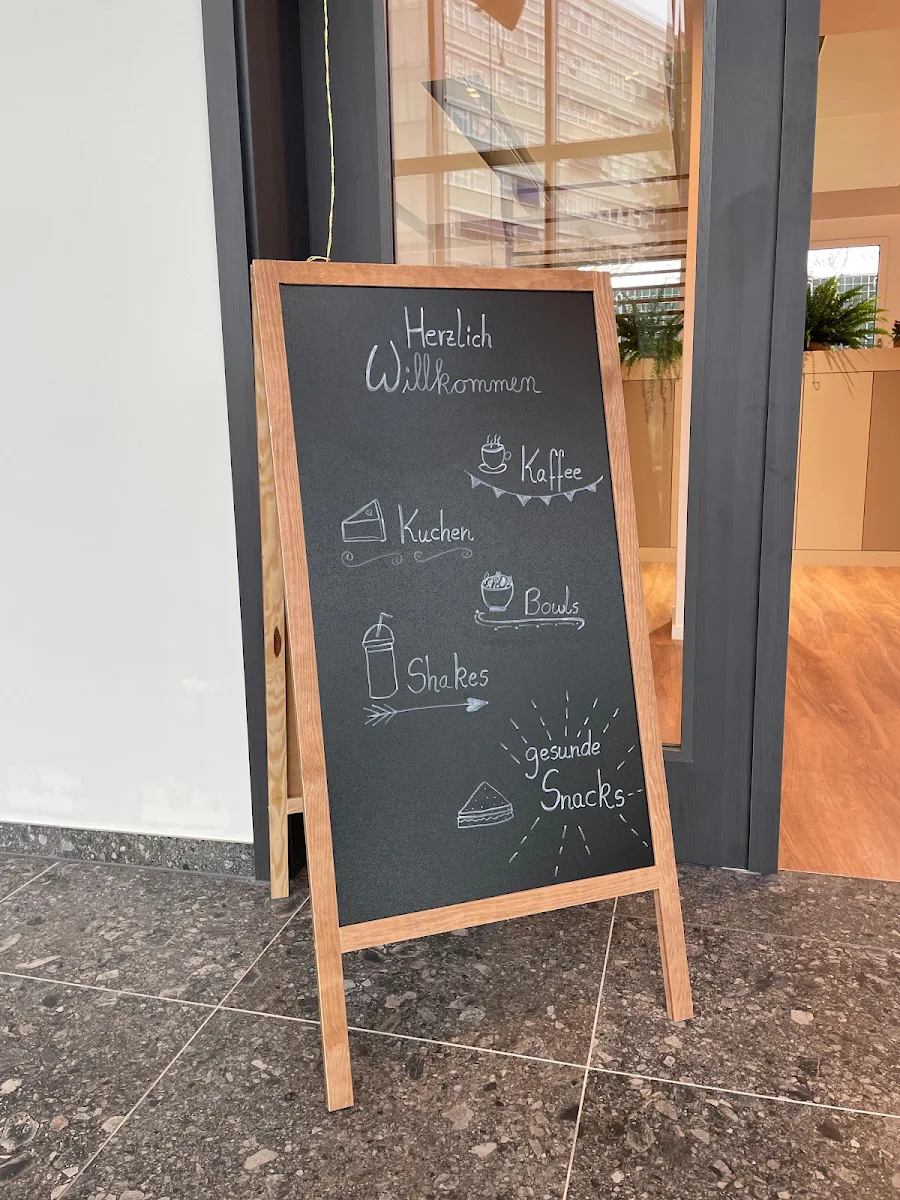 Herzlich
Willkommen
Kaffee
Kuchen
Bowls
Shakes
gesunde
Snacks